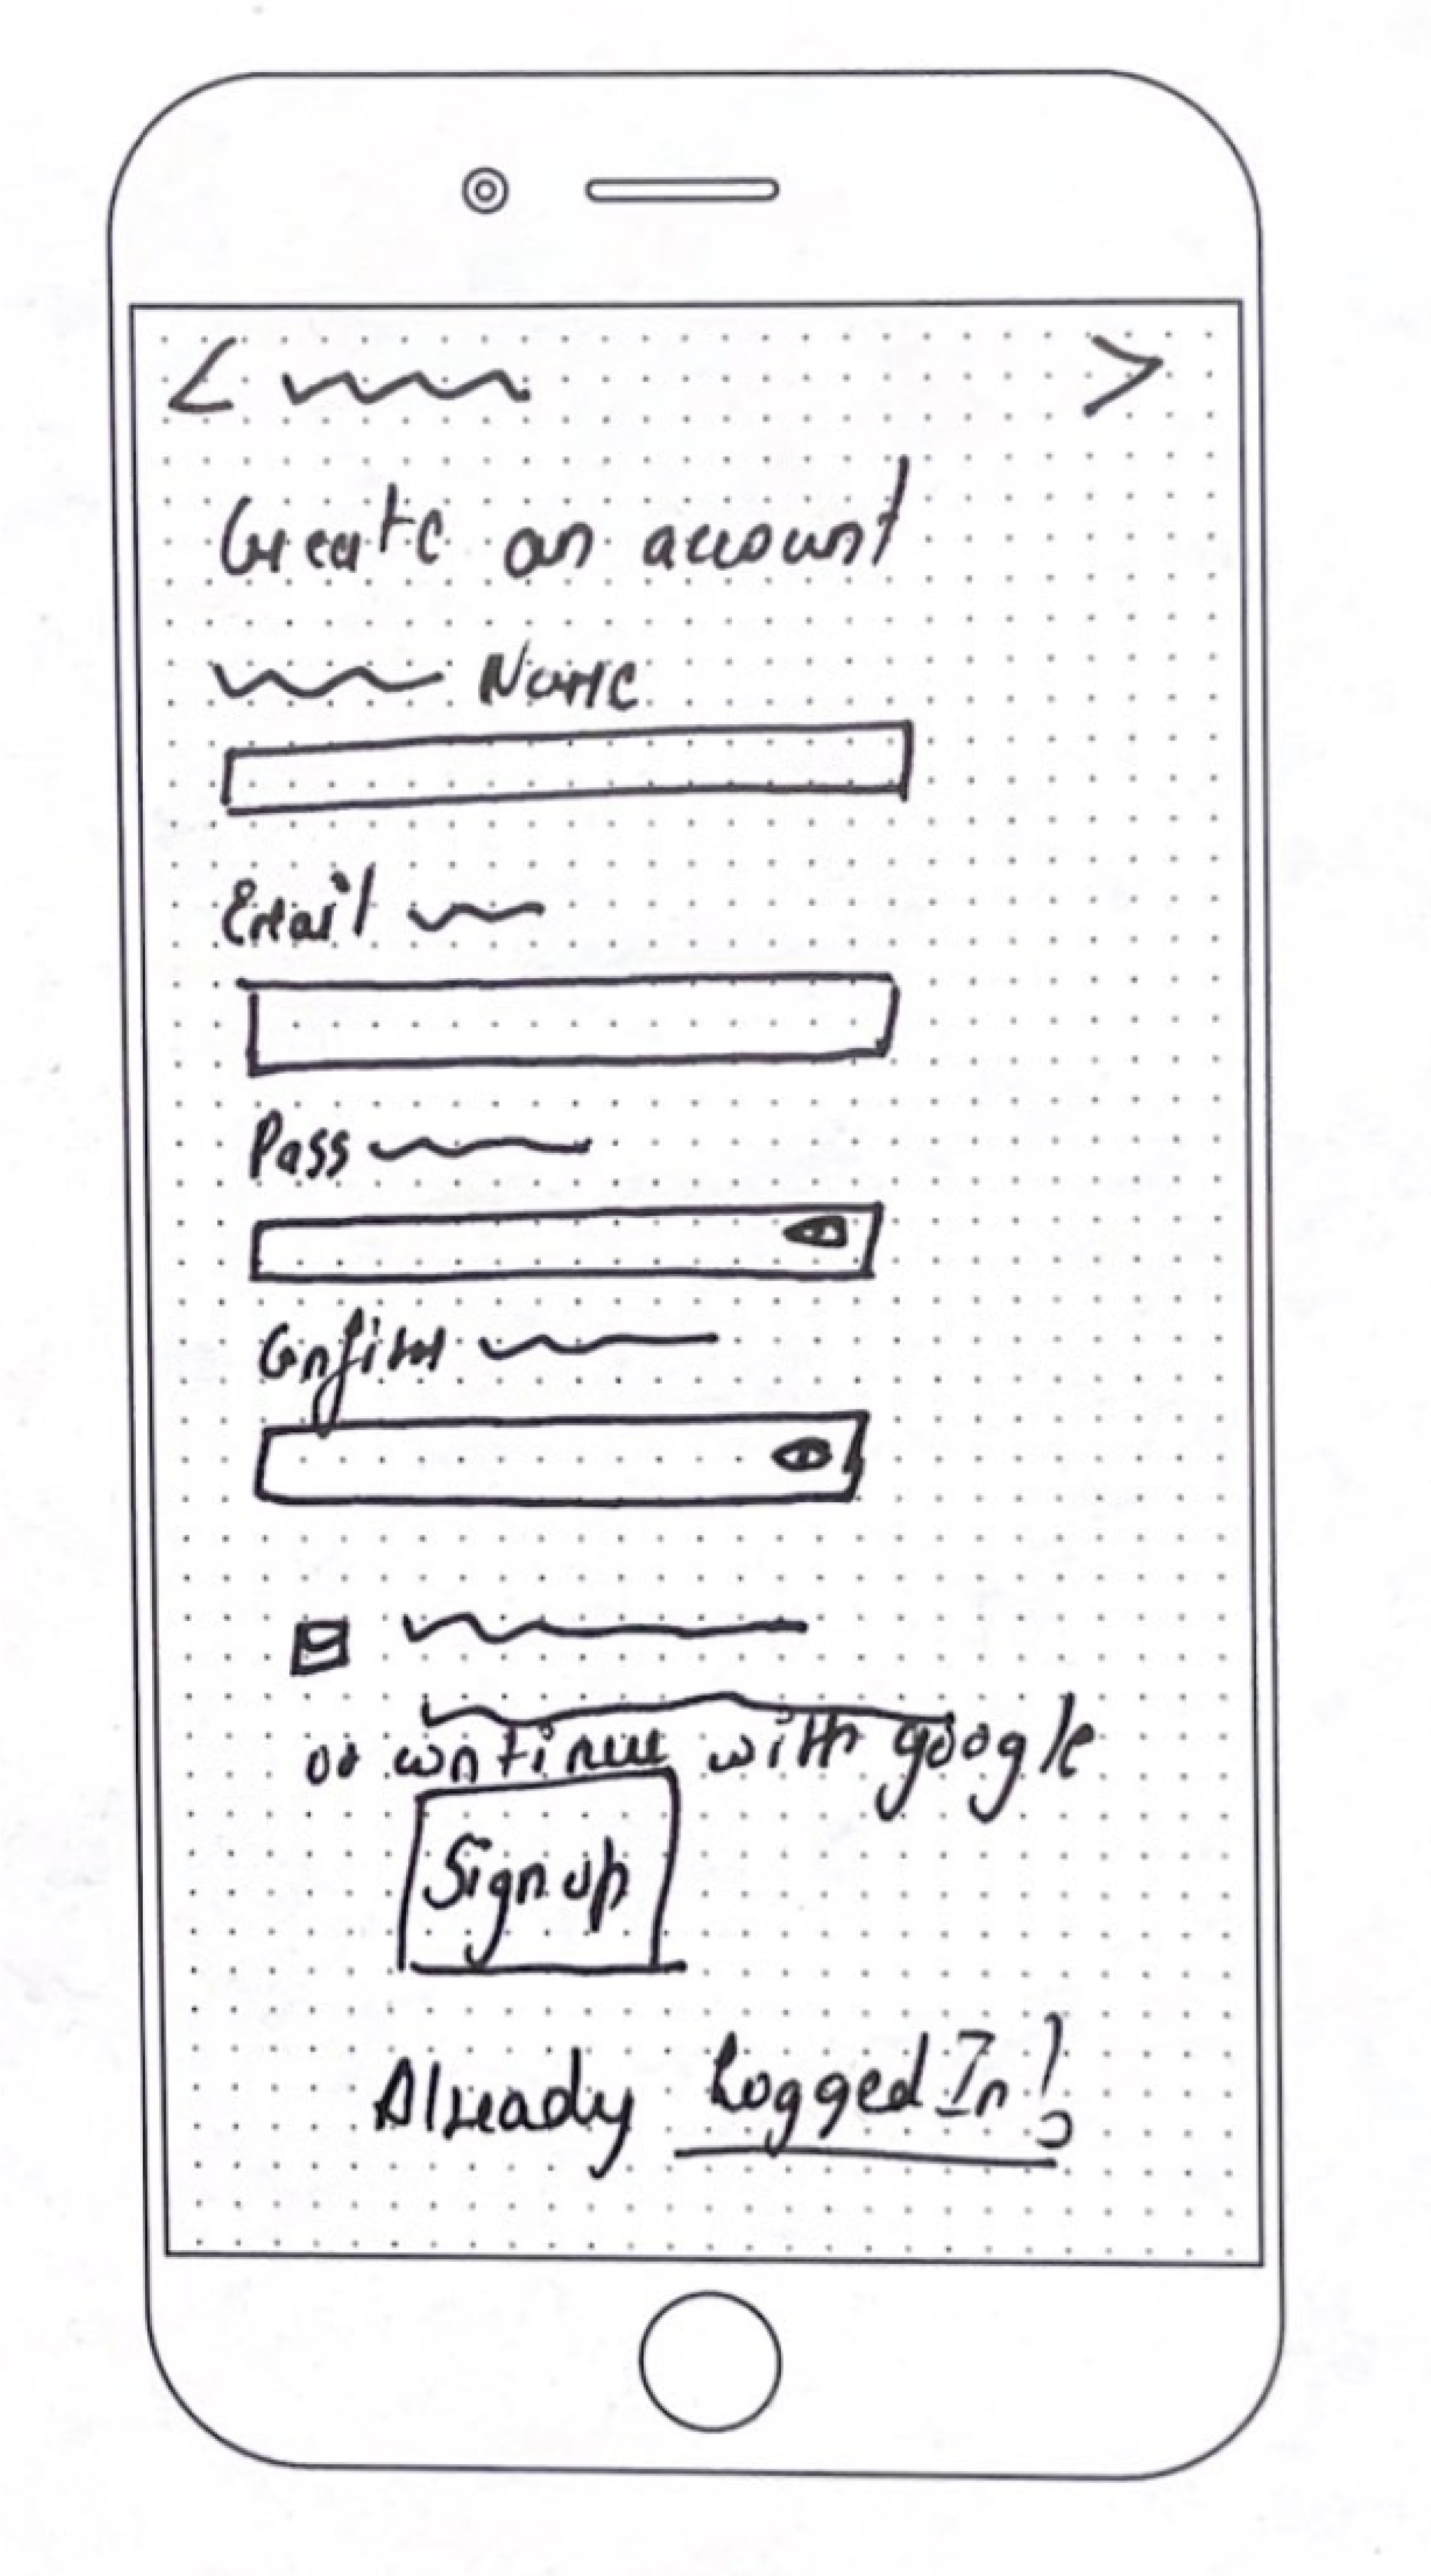 Create an account
Name
Email
Pass
Confirm
or continue with google
Sign up
Already Logged In!